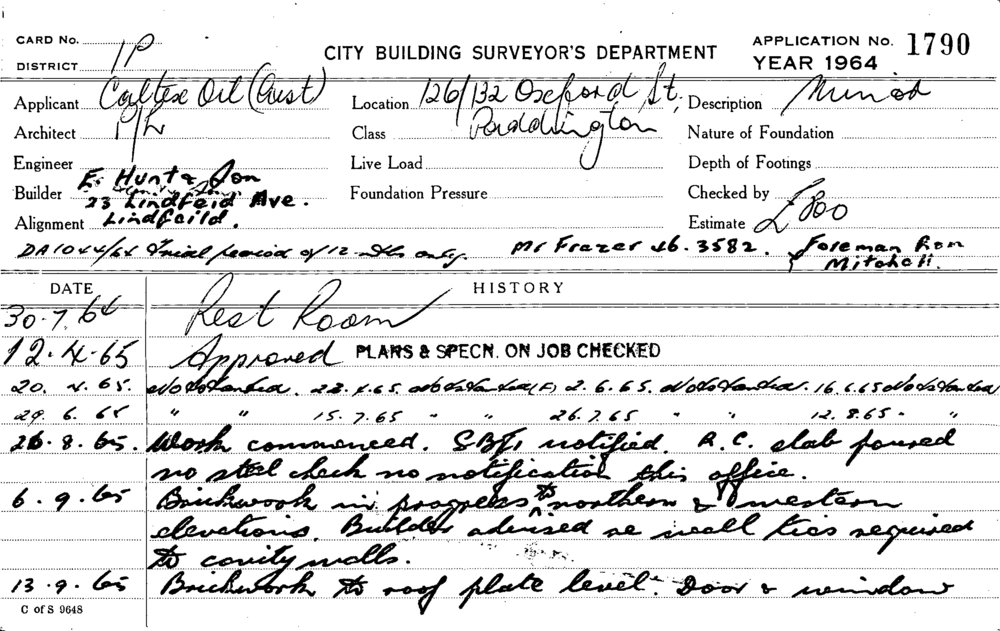 CARD No. 1P
DISTRICT
CITY BUILDING SURVEYOR'S DEPARTMENT
APPLICATION No. 1790
YEAR 1964
Applicant Caltex Oil (Aust)
Location 126/132 Oxford St,
Description Minor
Architect P/L
Class Paddington
Nature of Foundation
Engineer
Live Load
Depth of Footings
Builder E. Hunt & Son
23 Lindfeid Ave.
Foundation Pressure
Checked by
Alignment Lindfeild.
Estimate £800
DA1044/64 Trial period of 12 mths only. Mr Frazer 46.3582. Foreman Ron
Mitchell.
DATE HISTORY
30.7.64 Rest Room
12.4.65 Approved PLANS & SPECN. ON JOB CHECKED
20. 4. 65. Not Started. 23.4.65. Not Started (F) 2.6.65. Not Started. 16.6.65 Not Started
29. 6. 65 " " 15.7.65 " " 26.7.65 " " 12.8.65. " "
26.8.65. Work commenced. notified. R.C. slab poured
no steel check no notification this office.
6.9.65 Brickwork in progress to northern & western
elevations. Builder advised re wall ties required
to cavity walls.
13.9.65 Brickwork to roof plate level. Door & window
C of S 9648